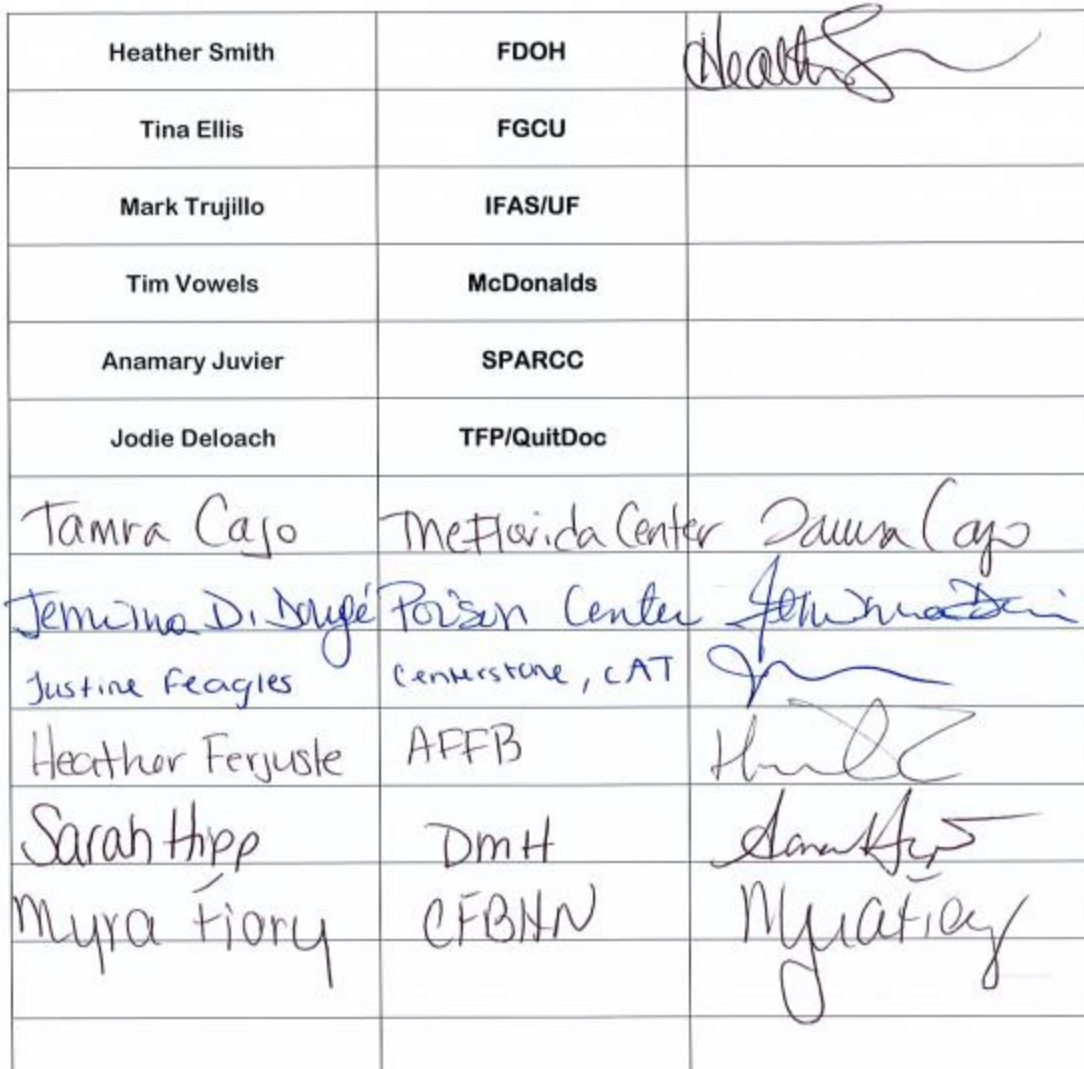 Heather Smith FDOH
Tina Ellis FGCU
Mark Trujillo IFAS/UF
Tim Vowels McDonalds
Anamary Juvier SPARCC
Jodie Deloach TFP/QuitDoc
Tamra Cajo The Florida Center
Poison Center
Justine Feagles Centerstone, CAT
Heather Ferjuste AFFB
Sarah Hipp DMH
Myra Fiory CFBHN